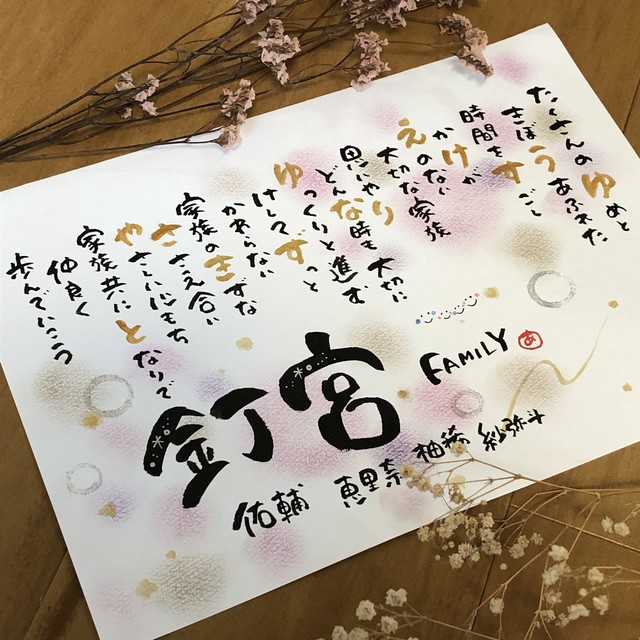 たくさんのゆめと
きぼうあふれた
時間をすごし
かけが
えのない
大切な家族
思いやり大切に
どんな時も
ゆっくりと進む
けしてずっと
かわらない
家族のきずな
ささえ合い
やさしい心もち
家族共にとなりで
仲良く
歩んでいこう
釘宮
FAMILY
あ
佑輔 恵里奈 柚綺 紗弥斗